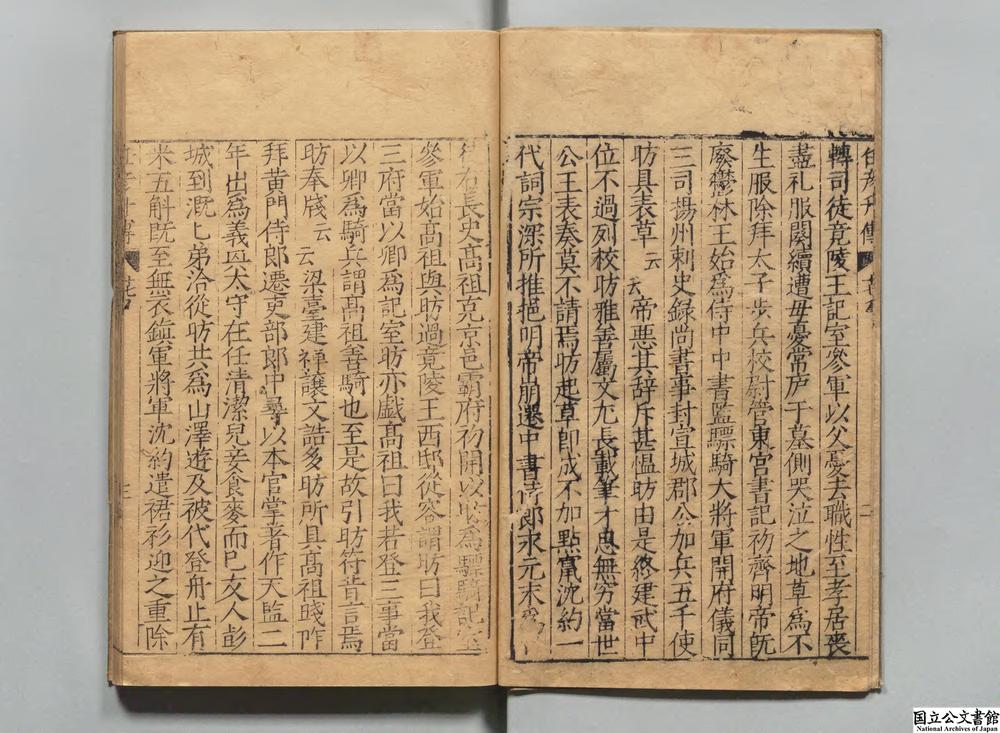 任彦升傳
轉司徒竟陵王記室參軍以父憂去職性至孝居喪
盡礼服闋續遭母憂常庐于墓側哭泣之地草爲不
生服除拜太子步兵校尉管東宮書記初齊明帝既
廢鬱林王始爲侍中中書監驃騎大將軍開府儀同
三司揚州刺史録尚書事封宣城郡公加兵五千使
昉具表草云云帝惡其辞斥甚愠昉由是終建武中
位不過列校昉雅善屬文尢長載筆才思無穷當世
公王表奏莫不請焉昉起草即成不加點竄沈約一
代詞宗深所推挹明帝崩遷中書侍郎永元末爲
長史髙祖克京邑霸府初開以昉爲驃騎記室
參軍始髙祖與昉過竟陵王西邸從容謂昉曰我登
三府當以卿爲記室昉亦戲髙祖曰我若登三事當
以卿爲騎兵謂髙祖善騎也至是故引昉符昔言焉
昉奉牋云云梁臺建禅讓文誥多昉所具髙祖踐阼
拜黄門侍郎遷吏部郎中尋以本官掌著作天監二
年出爲義𡷫太守在任清潔兒妾食麥而已友人彭
城到溉匕弟洽從昉共爲山澤遊及被代登舟止有
米五斛既至無衣鎮軍將軍沈約遣裙衫迎之重除
国立公文書館
National Archives of Japan